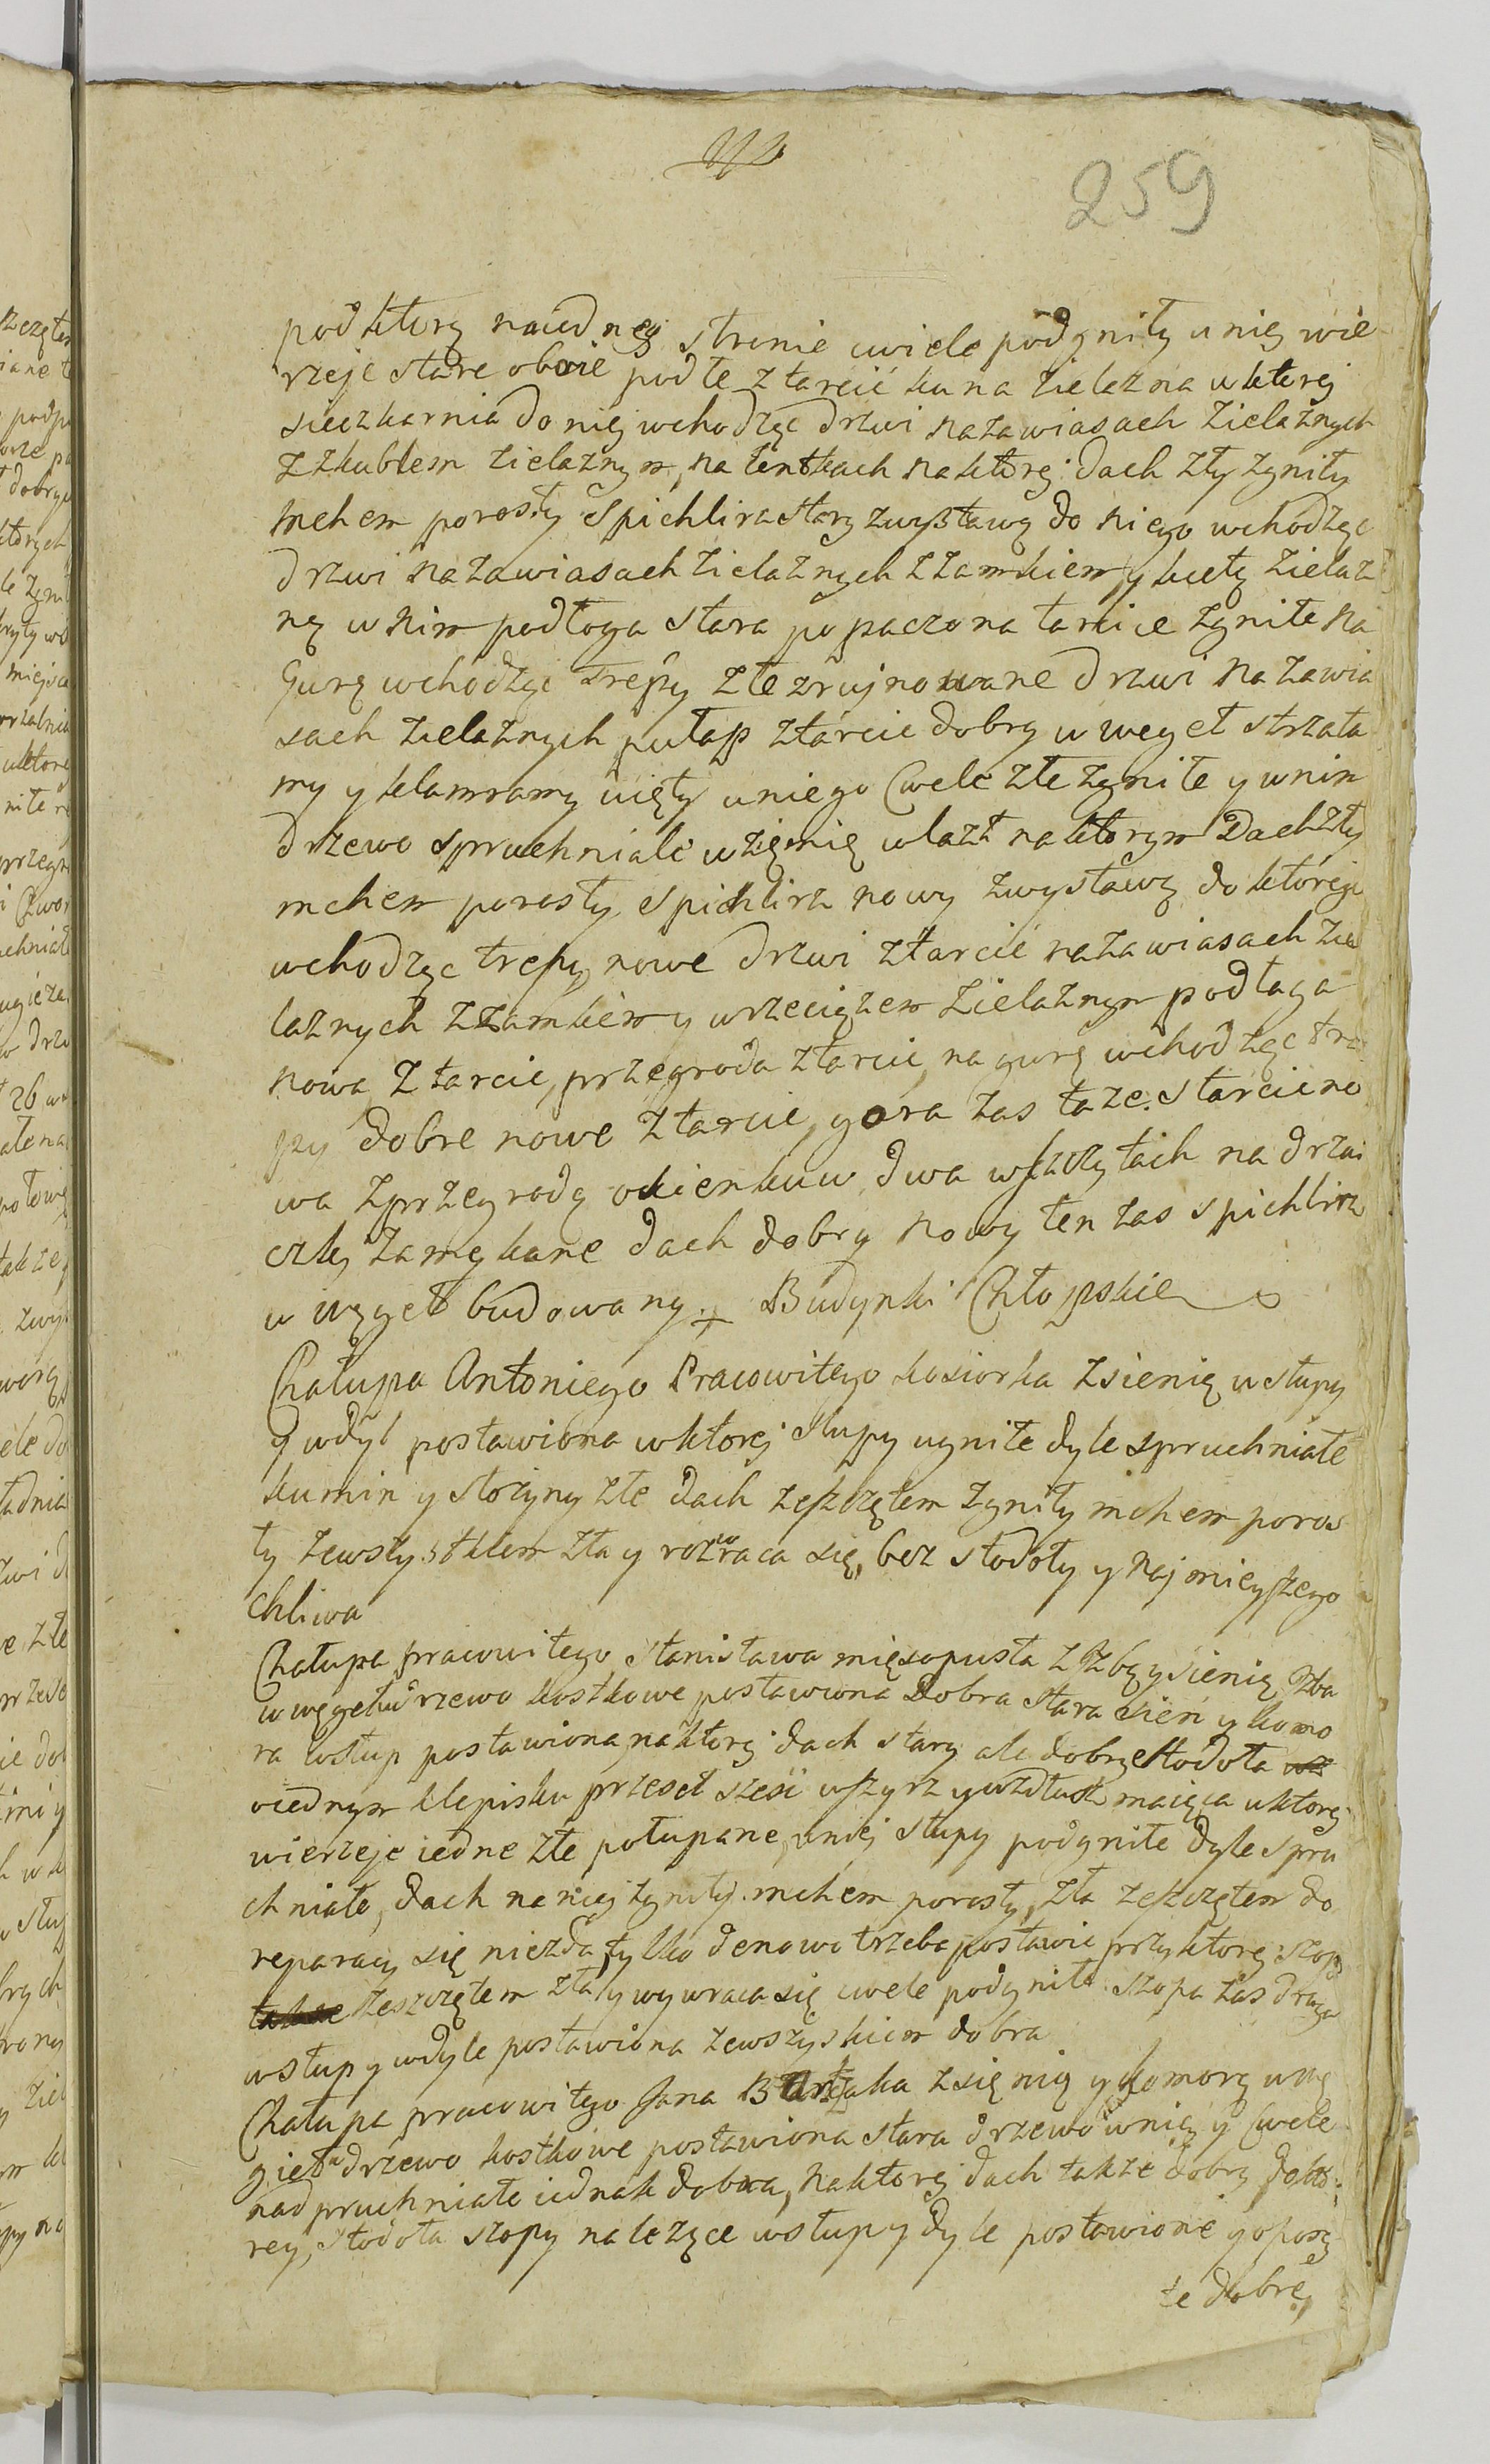 259
pod ktorą naiedneg stronie cwiele podgniły unię wie
rzeje stare oboie podłe ztarcic kuna żielazna wktorej
sieczkarnia do niej wchodząc drzwi nazawiasach żielaznych
zzkublem żielaznym, na łentkach naktorej dach zły zgniły
mchem porosły Spichlirz stary zwystawą do niego wchodząc
drzwi nazawiasach żielaznych zzamkiem y kietą żielaz
ną w nim podłoga stara popaczona tarcice zgniłe na
Gurę wchodząc trepy złe zrujnowane drzwi nazawia
sach żielaznych pułap ztarcic dobry w węgeł strzała
my y klamramy uięty uniego Cwele złe zgniłe y wnim
drzewo spruchniałe wziemię wlazł naktorym Dach zły
mchem porosły, Spichlirz nowy zwystawą do ktorego
wchodząc trepy nowe drzwi ztarcic nazawiasach żie
laznych zzamkiem y wrzeciązem żielaznym podłaga
nowa ztarcic, przegroda ztarcic, na gurę wchodząc tre
py dobre nowe ztarcic, gora zas taże starcic no
wa zprzegrodą okienkuw dwa wszczytach na drzwi
czky zamykane dach dobry nowy ten zas spichlirz
w węgeł budowany. Budynki Chłopskie
Chałupa Antoniego Pracowitego kosiorka zsienią wsłupy
y wdyl postawiona wktorej słupy ugniłe dyle spruchniałe
kumin y stożyny złe dach zeszczętem zgniły mchem poros
ły zewsłystkiem zła y rozwraca się, bez stodoły y najmieyszego
chliwa
Chałupa pracowitego Stanisława mięsopusta zIzbą y sienią Izba
w węgeł wdrzewo kostkowe postawiona dobra stara sień y komo
ra wsłup postawiona naktorej dach stary ale dobry stodoła
oiednym klepisku przeseł sześć wszyrz y wzdłusz maięca uktorej
wierzeje iedne złe połupane, uniej słupy podgniłe dyle spru
chniałe, dach na niej zgniły mchem porosły, zła zeszczętem do
reparacy się niezda, tylko denowo trzeba postawic przyktorej szopa
zeszczętem zła y wywraca się cwele podgniłe szopa zas druga
wsłup y wdyle postawiona zewszyskiem dobra
Chałupa pracowitego Jana zsienią y komorą wwę
gieł wdrzewo kostkowe postawiona stara drzewo wniey y Cwele
nadpruchniałe iednak dobra, Naktorej dach także dobry Dokto
rey, stodoła szopy nalezące wsłup y dyle postawione y oposzy
te dobre,